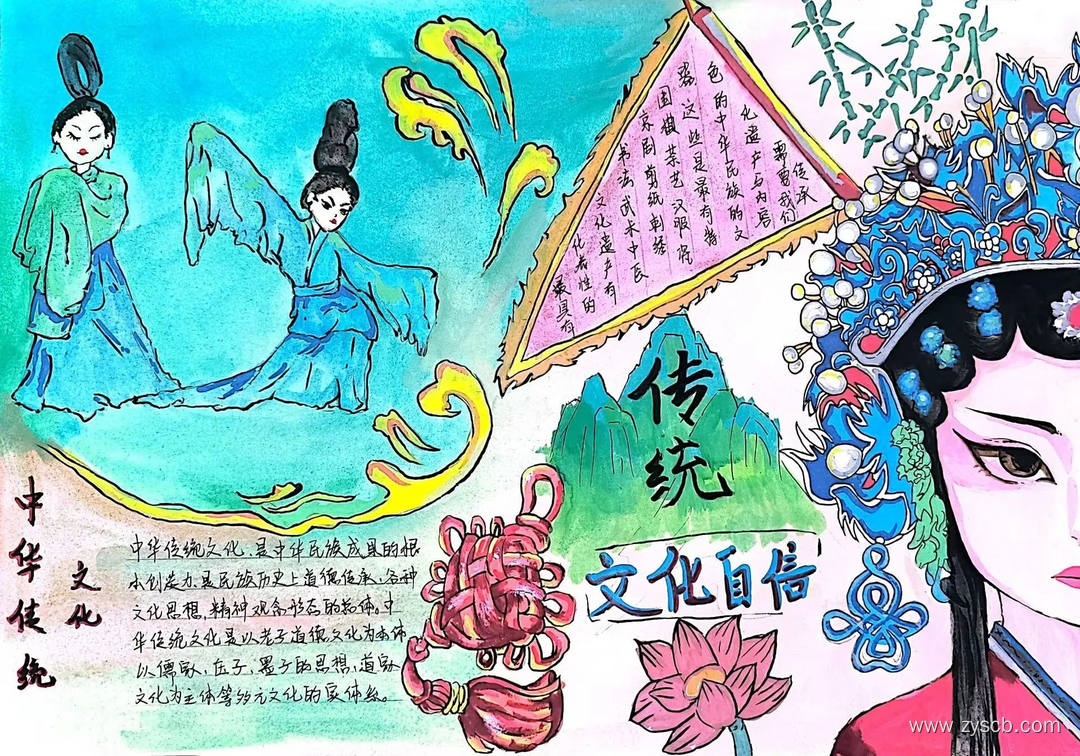 最具有
化表性的
文化遗产有
书法武术中医
京剧剪纸刺
国棋茶艺汉服瓷
器 这些是最有特
色的中华民族的文
化遗产与内
需要我们
传承
传统
文化自信
中华传统
文化
中华传统文化,是中华民族成果的根
本创造力是民族历史上道德传承、各种
文化思想,精神观念形态的总体。中
华传统文化是以老子道德文化为本体
以儒家、庄子、墨子的思想,道家
文化为主体等多元文化的实体系。
www.zyscb.com